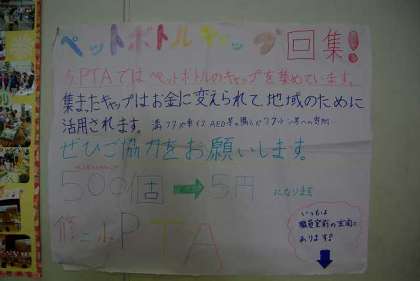 ペットボトルキャップ回集!
今、PTAではペットボトルのキャップを集めています。
集またキャップはお金に変えられて、地域のために
活用されます。
ぜひご協力をお願いします。
500個 → 5円 になります
修二小PTA
いつもは
職員室前の玄関に
あります!